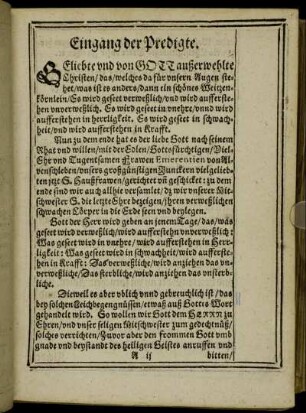 Eingang der Predigte.
GEliebte vnd von GOTT außerwehlte
Christen / das / welches da für vnsern Augen ste-
het / was ist es anders / dann ein schönes Weitzen-
körnlein / Es wird geset verweßlich / vnd wird aufferste-
hen vnverweßlich. Es wird geset in vnehre / vnnd wird
aufferstehen in herrligkeit. Es wird geset in schwach-
heit / vnd wird aufferstehen in Krafft.
Nun zu dem ende hat es der liebe Gott nach seinem
Rhat vnd willen / mit der Edlen / Gottesfürchtigen / Viel-
Ehr vnd Tugentsamen Frawen Emerentien von Al-
venschleben / vnsers großgünstigen Junckern vielgelieb-
ten jetzt S. Haußfrawen / gerichtet vñ geschicket: zu dem
ende sind wir auch allhie versamlet / dz wir vnserer Mit-
schwester S. die letzte Ehr bezeigen / jhren verweßlichen
schwachen Cörper in die Erde setzen vnd beylegen.
Gott der Herr wird geben an jenem Tage / das / was
geset wird verweßlich / wird aufferstehn vnverweßlich:
Was geset wird in vnehre / wird aufferstehen in Herr-
ligkeit: Was geset wird in schwachheit / wird aufferstehen
in Krafft: Das verweßliche / wird anziehen das vn-
verweßliche / Das sterbliche / wird anziehen das vnsterb-
liche.
Dieweil es aber vblich vnd gebreuchlich ist / das
bey solchen Leichbegengnüssen / etwas auß Gottes Wort
gehandelt wird. So wollen wir Gott dem HERRN zu
Ehren / vnd vnser seligen Mitschwester zum gedechtnüß /
solches verrichten / Zuvor aber den frommen Gott vmb
gnade vnd beystandt des heiligen Geistes anruffen vnd
A ij
bitten /